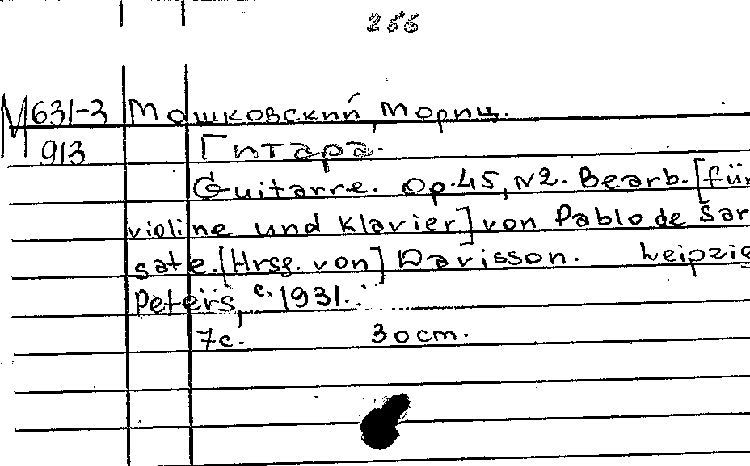 266
М631-3 Мошковский, Мориц.
913 Гитара.
Guitarre. Op.45, N2. Bearb. [für
violine und Klavier] von Pablo de Sar
sate. [Hrsg. von] Davisson. Leipzig
Peters, c.1931.
7c. 30cm.